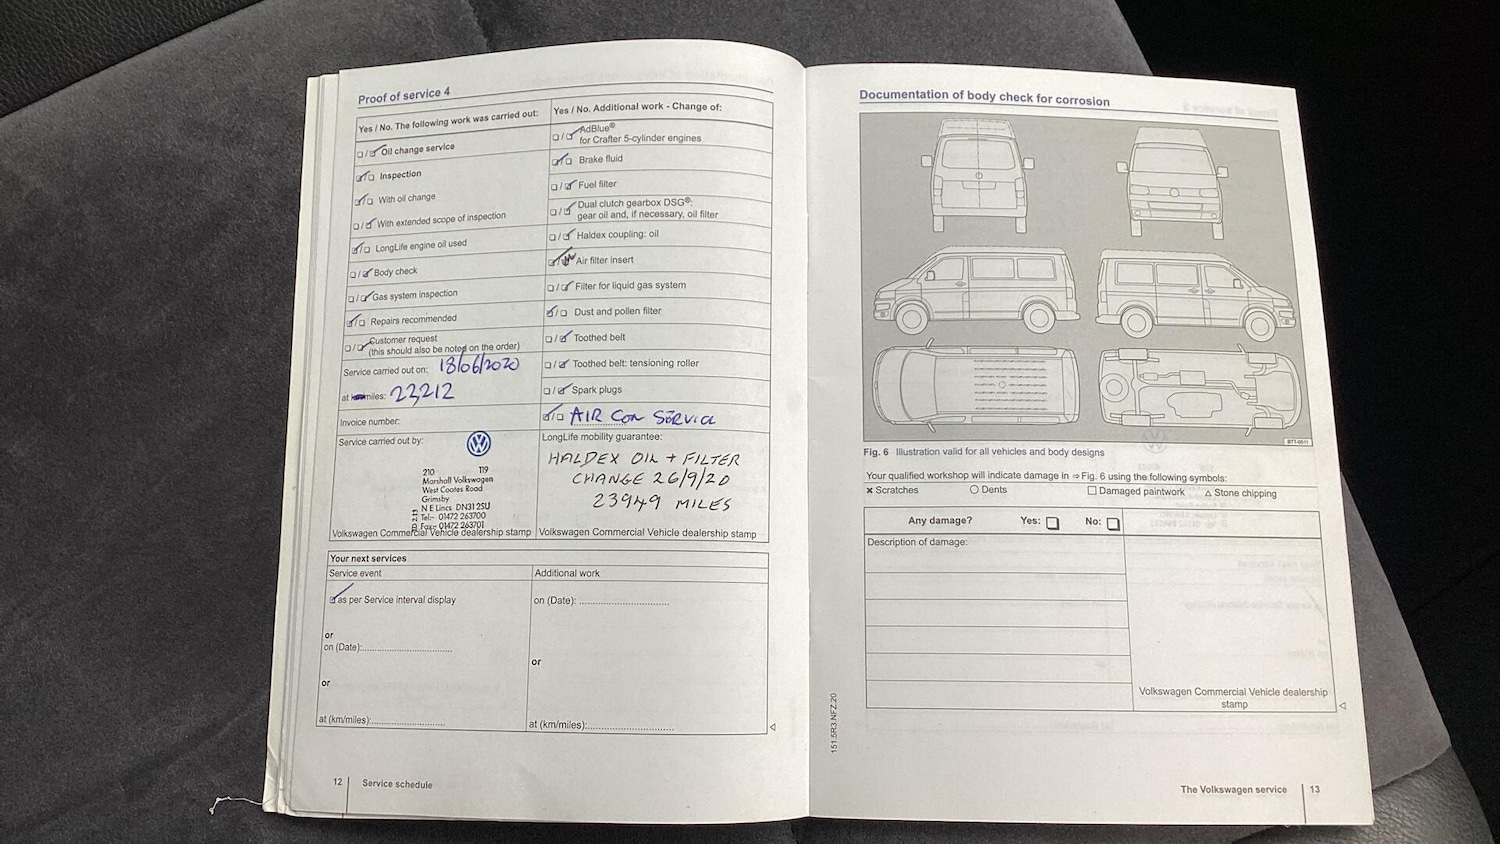 Proof of service 4
Yes / No. The following work was carried out:
Oil change service
Inspection
With oil change
With extended scope of inspection
LongLife engine oil used
Body check
Gas system inspection
Repairs recommended
Customer request
(this should also be noted on the order)
Service carried out on: 18/06/2020
at km/miles: 23212
Invoice number:
Service carried out by:
210 119
Marshall Volkswagen
West Coates Road
Grimsby
N E Lincs DN31 2SU
Tel:- 01472 263700
Fax:- 01472 263701
Volkswagen Commercial Vehicle dealership stamp
Yes / No. Additional work - Change of:
AdBlue®
for Crafter 5-cylinder engines
Brake fluid
Fuel filter
Dual clutch gearbox DSG®:
gear oil and, if necessary, oil filter
Haldex coupling: oil
Air filter insert
Filter for liquid gas system
Dust and pollen filter
Toothed belt
Toothed belt: tensioning roller
Spark plugs
AIR CON SERVICE
LongLife mobility guarantee:
HALDEX OIL + FILTER
CHANGE 26/9/20
23949 MILES
Volkswagen Commercial Vehicle dealership stamp
Your next services
Service event
as per Service interval display
or
on (Date):
or
at (km/miles):
Additional work
on (Date):
or
at (km/miles):
12 Service schedule
Documentation of body check for corrosion
B7T-0511
Fig. 6 Illustration valid for all vehicles and body designs
Your qualified workshop will indicate damage in ⇒ Fig. 6 using the following symbols:
× Scratches ○ Dents □ Damaged paintwork △ Stone chipping
Any damage? Yes: No:
Description of damage:
Volkswagen Commercial Vehicle dealership
stamp
151.5R3.NFZ.20
The Volkswagen service 13